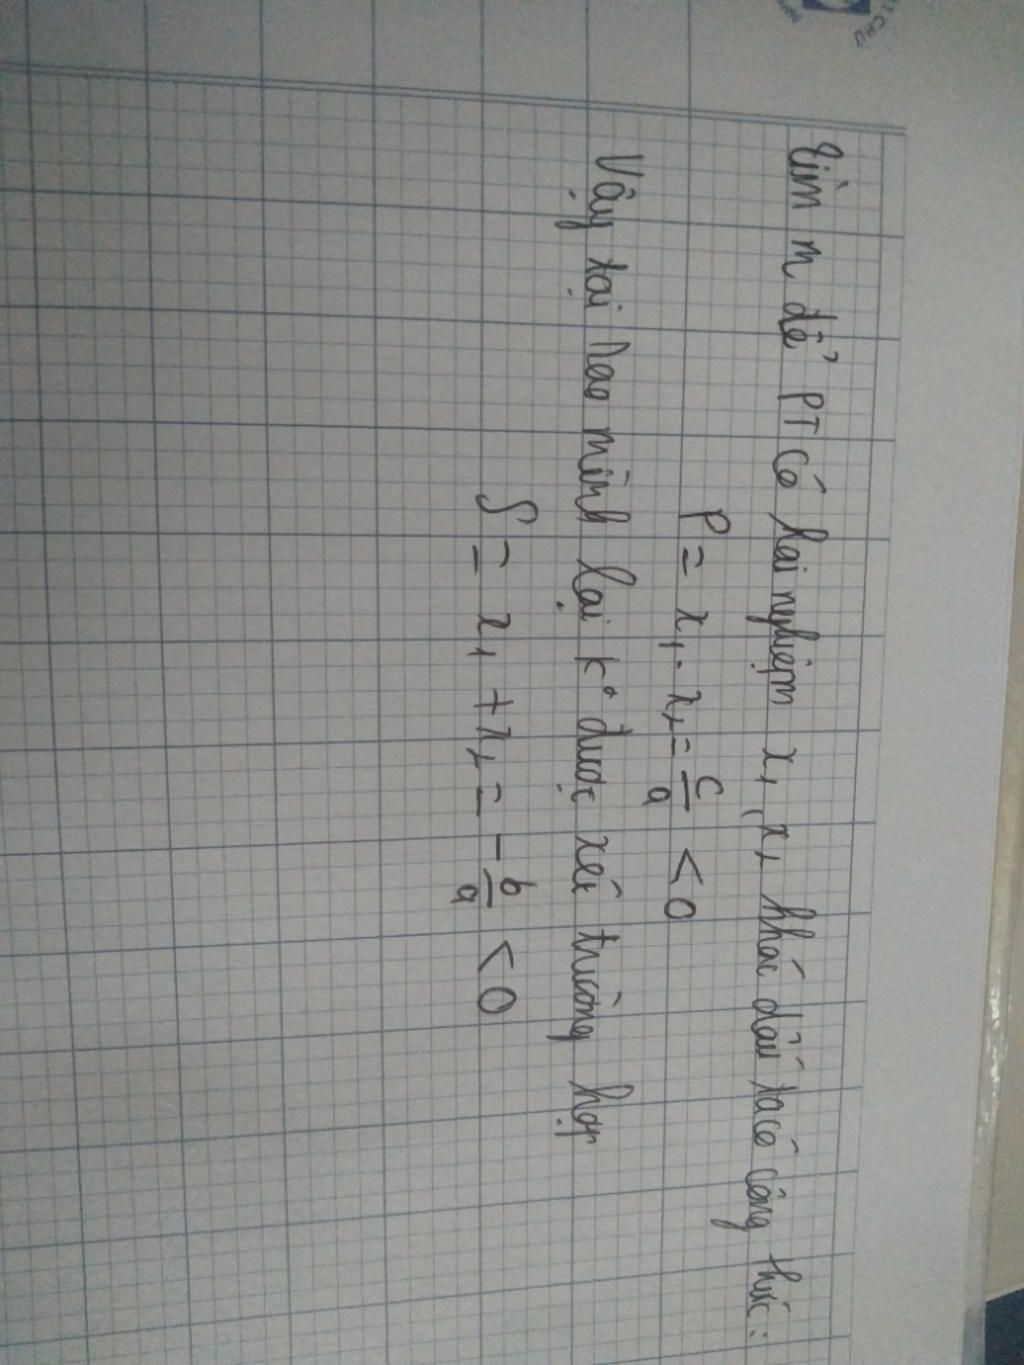 Tìm m để PT có hai nghiệm x₁, x₂ khác dấu ta có công thức:
P = x₁ . x₂ = c/a < 0
Vậy tại sao mình lại k° được xét trường hợp
S = x₁ + x₂ = - b/a < 0